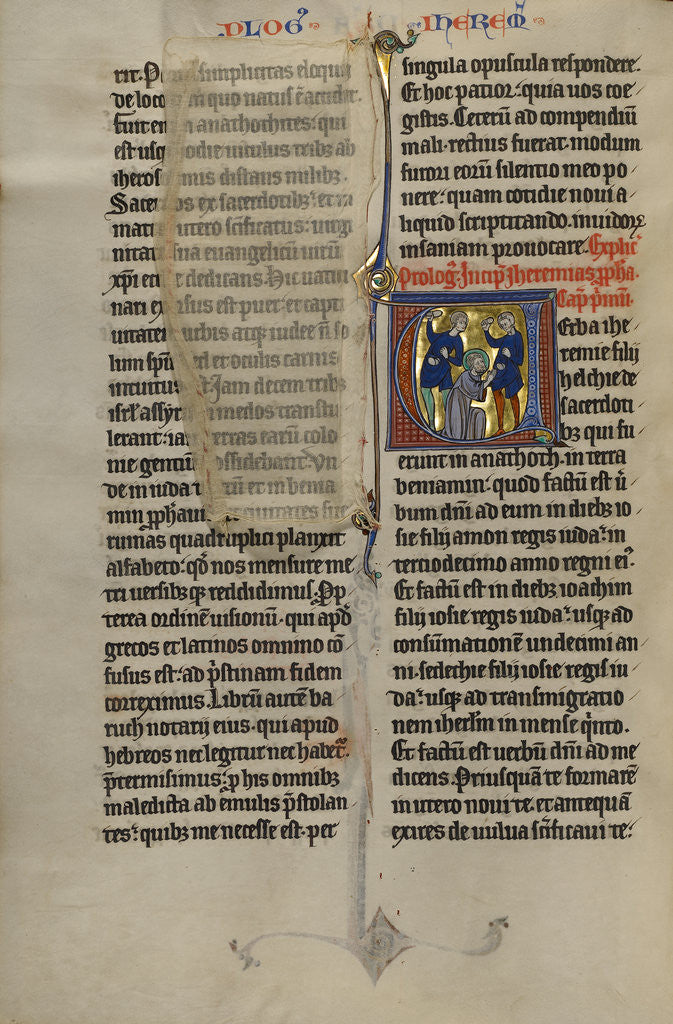 PLOG' IHEREM̃
rit. simplicitas eloquii
de loco in quo natus ē accidit.
fuit en anathothites: qui
est usq hodie uiculus tribꝫ ab
iherosolimis distans milibꝫ.
Sacerdos ex sacerdotibꝫ: et in
matris utero sc̄ificatus: uirgi
nitate sua euangelicū uirū
xp̄i dedicans. Hic uatici
nari exorsus est puer: et capti
uitatē urbis atqꝫ iudee ñ so
lum sp̄u sed et oculis carnis
intuitus. Iam decem tribꝫ
isrł assyrii in medos transtu
lerant: iam terras earū colo
nie gentiū possidebant. Vn
de in iuda tantū et in benia
min ꝓphauit: ciuitatis sue
ruinas quadruplici planxit
alfabeto: qd' nos mensure me
tri uersibꝫqꝫ reddidimus. Pp
terea ordinē uisionū. qui apd'
grecos et latinos omnino cō
fusus est: ad p̄stinam fidem
correximus. Librū autē ba
ruch notarij eius. qui apud
hebreos nec legitur nec habet'.
p̄termisimus: ꝓ his omnibꝫ
maledicta ab emulis p̄stolan
tes: quibꝫ me necesse est. per
singula opuscula respondere.
Et hoc patior: quia uos coe
gistis. Ceterū ad compendiū
mali. rectius fuerat. modum
furori eorū silentio meo po
nere: quam cotidie noui a
liquid scriptitando. inuidoꝝ
insaniam prouocare. Explic'
Prolog'. Incip' Iheremias ꝓpħa.
Cap̄ p'mū.
Verba ihe
remie filij
helchie de
sacerdoti
bꝫ qui fu
erunt in anathoth. in terra
beniamin: quod factū est ū
bum dn̄i ad eum in diebꝫ io
sie filij amon regis iuda: in
tertiodecimo anno regni ei'.
Et factū est in diebꝫ ioachim
filij iosie regis iuda: usqꝫ ad
consūmationē undecimi an
ni. sedechie filij iosie regis iu
da: usqꝫ ad transmigratio
nem iherłm in mense q̄nto.
Et factū est uerbū dn̄i ad me
dicens. Priusquā te formarē
in utero noui te. et antequā
exires de uulua sc̄ificaui te: